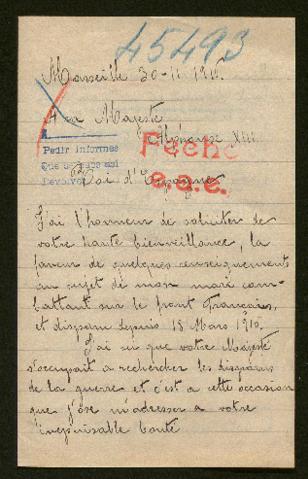 45493
Marseille 30-11 1915.
A sa Majesté
Alphonse XIII
Pedir informes
Fecho
Roi d'Espagne
J'ai l'honneur de soliciter de
votre haute bienveillance, la
faveur de quelques renseignements
au sujet de mon mari com-
battant sur le front Francais,
et disparu depuis 15 Mars 1915.
J'ai vu que votre Majesté
s'occupait a rechercher les disparus
de la guerre et c'est a cette occasion
que j'ose m'adresser a votre
inepuisable bonté